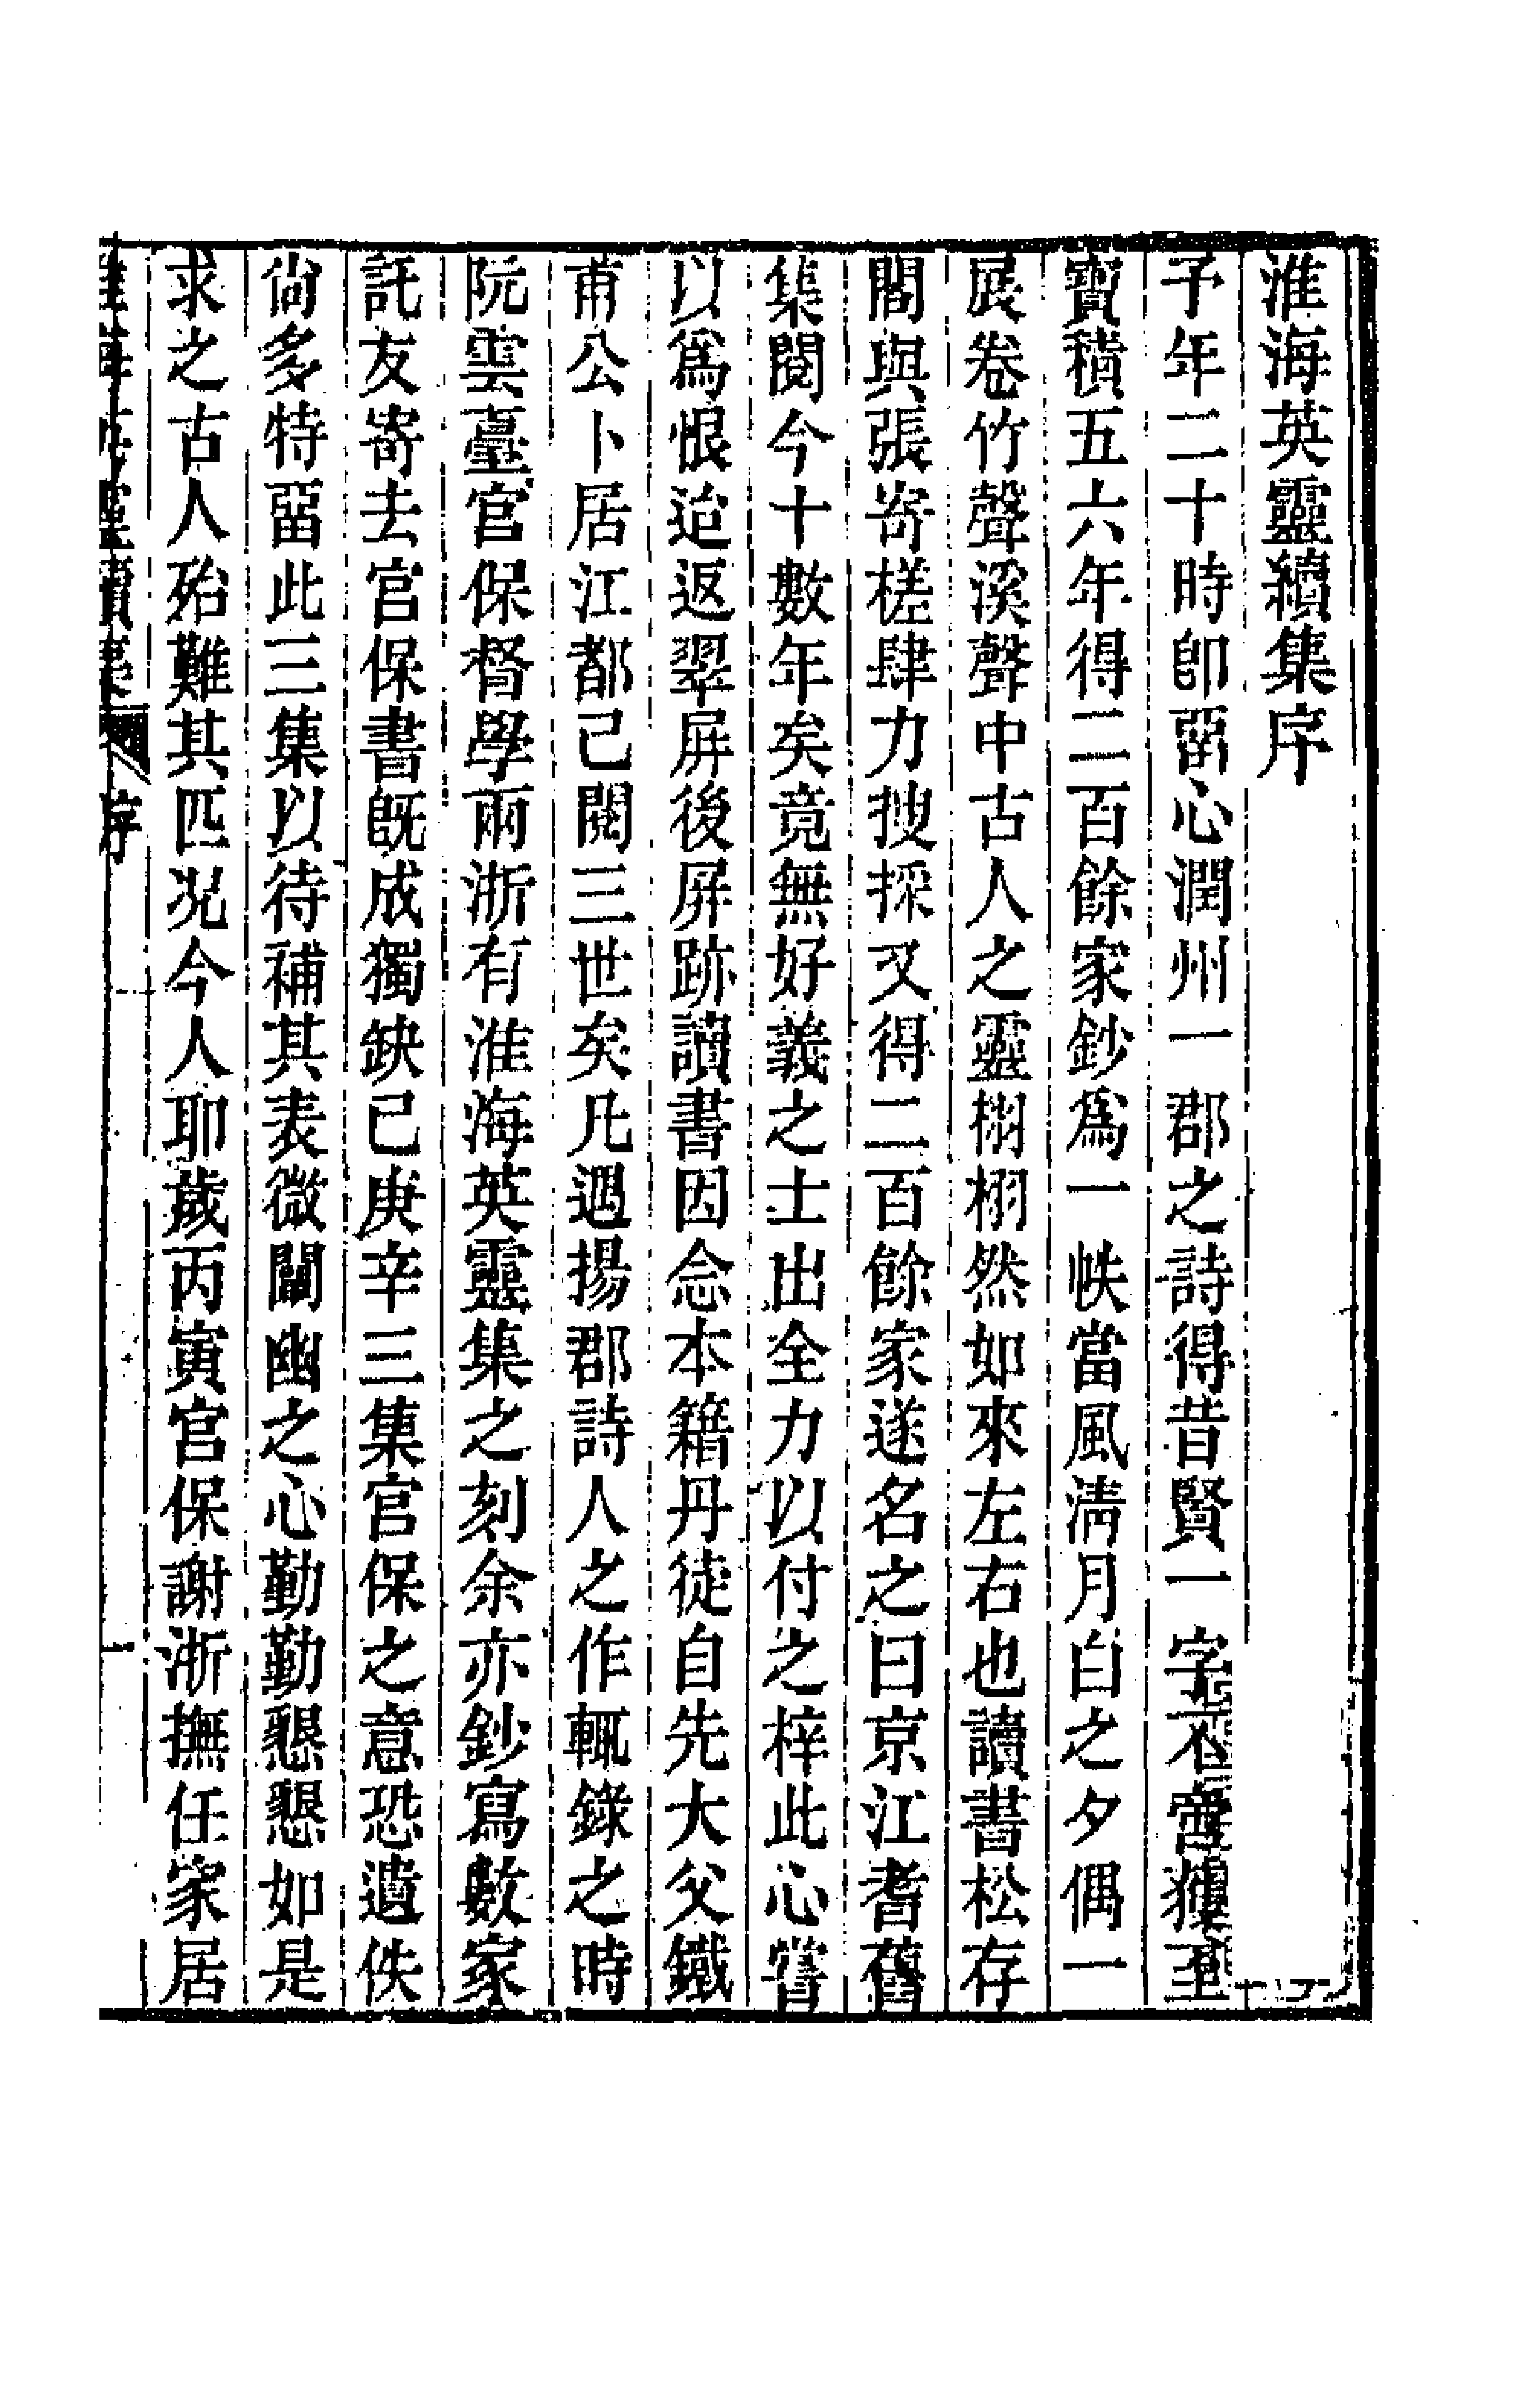 淮海英靈續集序
予年二十時卽畱心潤州一郡之詩得昔賢一字不啻獲至
寶積五六年得二百餘家鈔爲一帙當風淸月白之夕偶一
展卷竹聲溪聲中古人之靈栩栩然如來左右也讀書松存
閣與張寄槎肆力搜採又得二百餘家遂名之曰京江耆舊
集閱今十數年矣竟無好義之士出全力以付之梓此心嘗
以爲恨迨返翠屛後屛跡讀書因念本籍丹徒自先大父鐵
甫公卜居江都已閱三世矣凡遇揚郡詩人之作輒錄之時
阮雲臺宮保督學兩浙有淮海英靈集之刻余亦鈔寫數家
託友寄去宮保書旣成獨缺已庚辛三集官保之意恐遺佚
尙多特畱此三集以待補其表微闡幽之心勤勤懇懇如是
求之古人殆難其匹况今人耶歲丙寅宮保謝浙撫任家居
淮海英靈續集 序 一